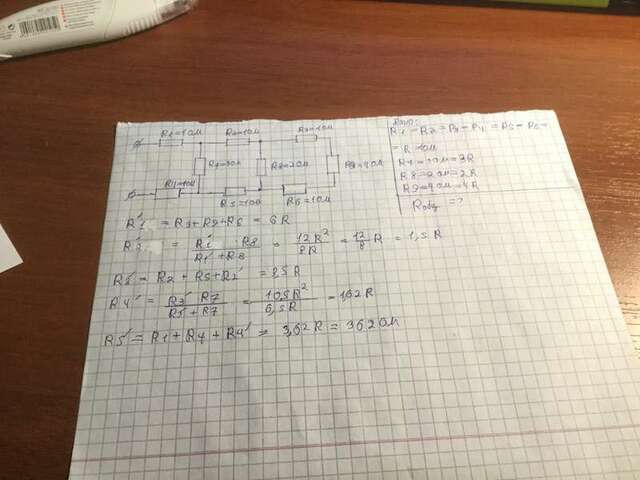 R1=1Ом R2=1Ом R3=1Ом
R7=3Ом R8=2Ом R9=4Ом
R4=1Ом R5=1Ом R6=1Ом
Дано:
R1=R2=R3=R4=R5=R6=
=R=1Ом
R7=3Ом=3R
R8=2Ом=2R
R9=4Ом=4R
Rобщ =?
R1' = R3+R9+R6 = 6R
R2' = R1' · R8 / R1' + R8 = 12R² / 8R = 12/8 R = 1,5R
R3' = R2 + R5 + R2' = 3,5R
R4' = R3' · R7 / R3' + R7 = 10,5R² / 6,5R = 1,62R
R5' = R1 + R4 + R4' = 3,62R = 3,62Ом